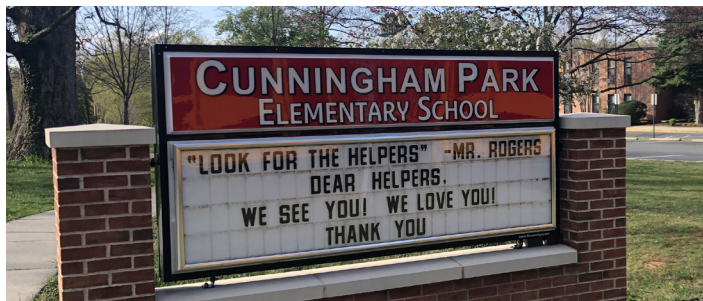 CUNNINGHAM PARK
ELEMENTARY SCHOOL
"LOOK FOR THE HELPERS" -MR. ROGERS
DEAR HELPERS,
WE SEE YOU! WE LOVE YOU!
THANK YOU